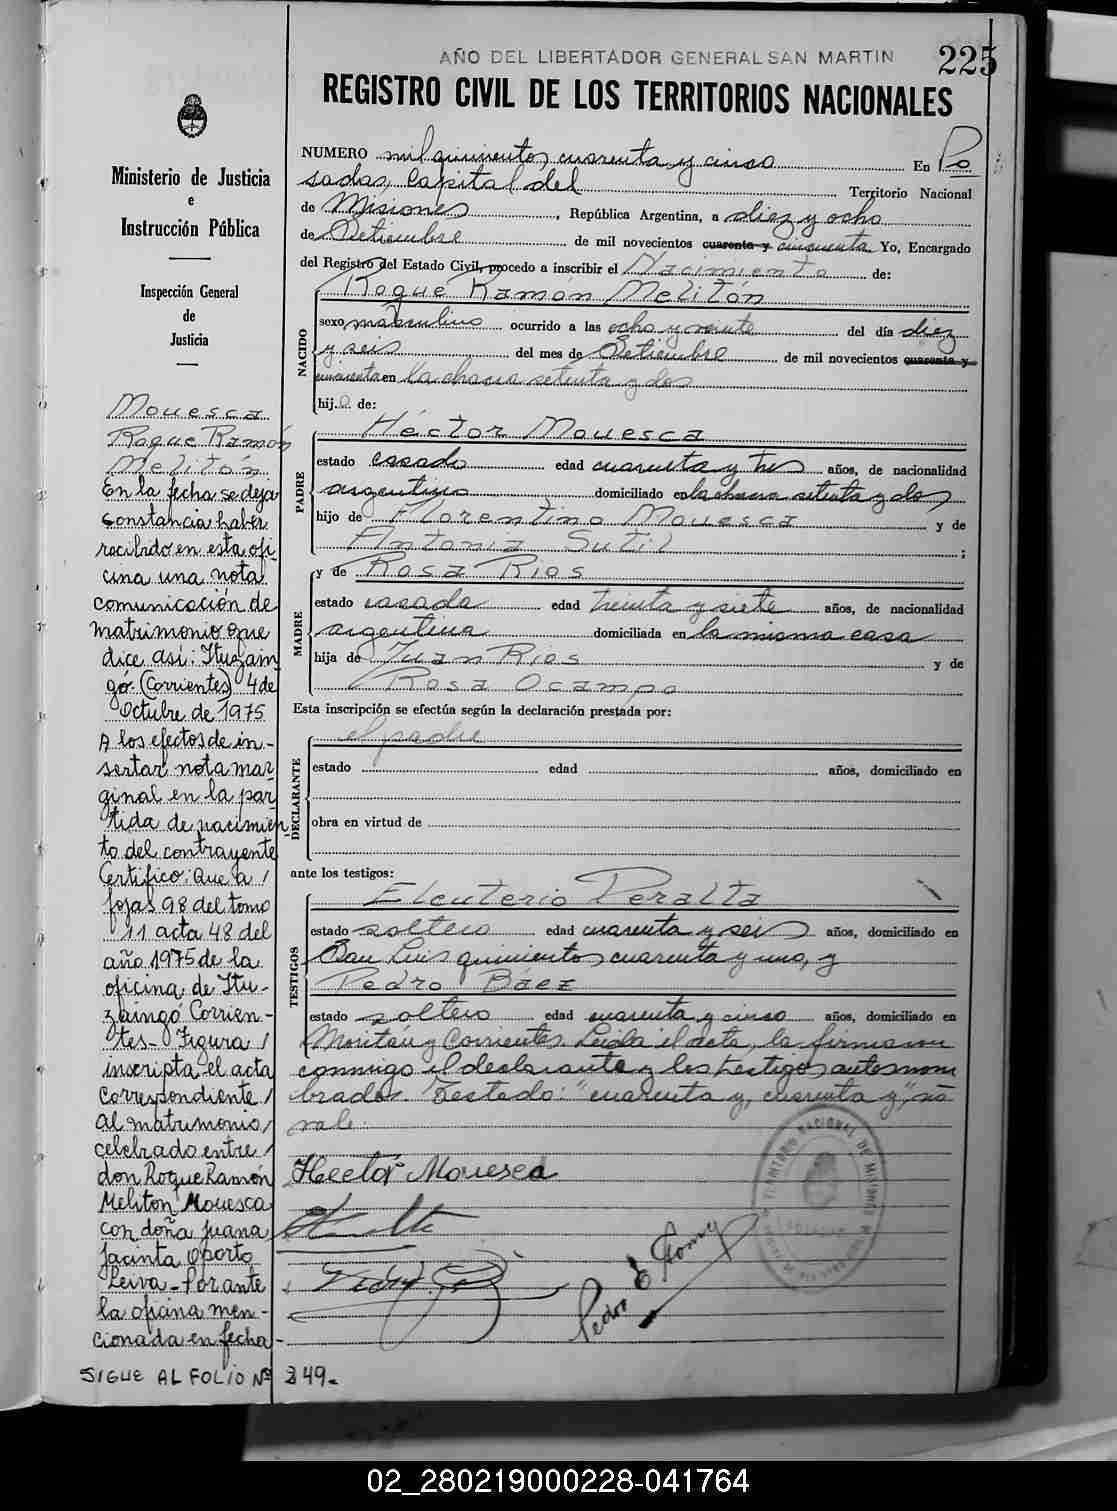 AÑO DEL LIBERTADOR GENERAL SAN MARTIN
225
REGISTRO CIVIL DE LOS TERRITORIOS NACIONALES
Ministerio de Justicia
e
Instrucción Pública
Inspección General
de
Justicia
NUMERO mil quinientos cuarenta y cinco En Po
sadas, Capital del Territorio Nacional
de Misiones, República Argentina, a diez y ocho
de Setiembre de mil novecientos cuarenta y cincuenta Yo, Encargado
del Registro del Estado Civil, procedo a inscribir el Nacimiento de:
NACIDO
Roque Ramón Melitón
sexo masculino ocurrido a las ocho y veinte del día diez
y seis del mes de Setiembre de mil novecientos cuarenta y
cincuenta en la chacra setenta y dos
hij.o de:
PADRE
Héctor Mouesca
estado casado edad cuarenta y tres años, de nacionalidad
argentino domiciliado en la chacra setenta y dos
hijo de Florentino Mouesca y de
Antonia Sutil ;
MADRE
y de Rosa Rios
estado casada edad treinta y siete años, de nacionalidad
argentina domiciliada en la misma casa
hija de Juan Rios y de
Rosa Ocampo
Esta inscripción se efectúa según la declaración prestada por:
DECLARANTE
el padre
estado edad años, domiciliado en
obra en virtud de
ante los testigos:
TESTIGOS
Eleuterio Peralta
estado soltero edad cuarenta y seis años, domiciliado en
San Luis quinientos cuarenta y uno, y
Pedro Báez
estado soltero edad cuarenta y cinco años, domiciliado en
Moritán y Corrientes. Leida el acta, la firmaron
conmigo el declarante y los testigos antenom
brados. Testado: "cuarenta y, cuarenta y", no
vale.
Hector Mouesca
Pedro E Gomy
Mouesca
Roque Ramón
Melitón
En la fecha se deja
constancia haber
recibido en esta ofi
cina una nota
comunicación de
matrimonio que
dice así: Ituzain
gó (Corrientes) 4 de
Octubre de 1975
A los efectos de in-
sertar nota mar
ginal en la par
tida de nacimien
to del contrayente
Certifico: Que a /
fojas 98 del tomo
11 acta 48 del
año 1975 de la
oficina de Itu-
zaingó Corrien-
tes- Figura /
inscripta el acta
correspondiente /
al matrimonio /
celebrado entre /
don Roque Ramón
Meliton Mouesca
con doña Juana
Jacinta Oporto
Leiva - Por ante
la oficina men-
cionada en fecha -
SIGUE AL FOLIO Nº 249.-
02_280219000228-041764